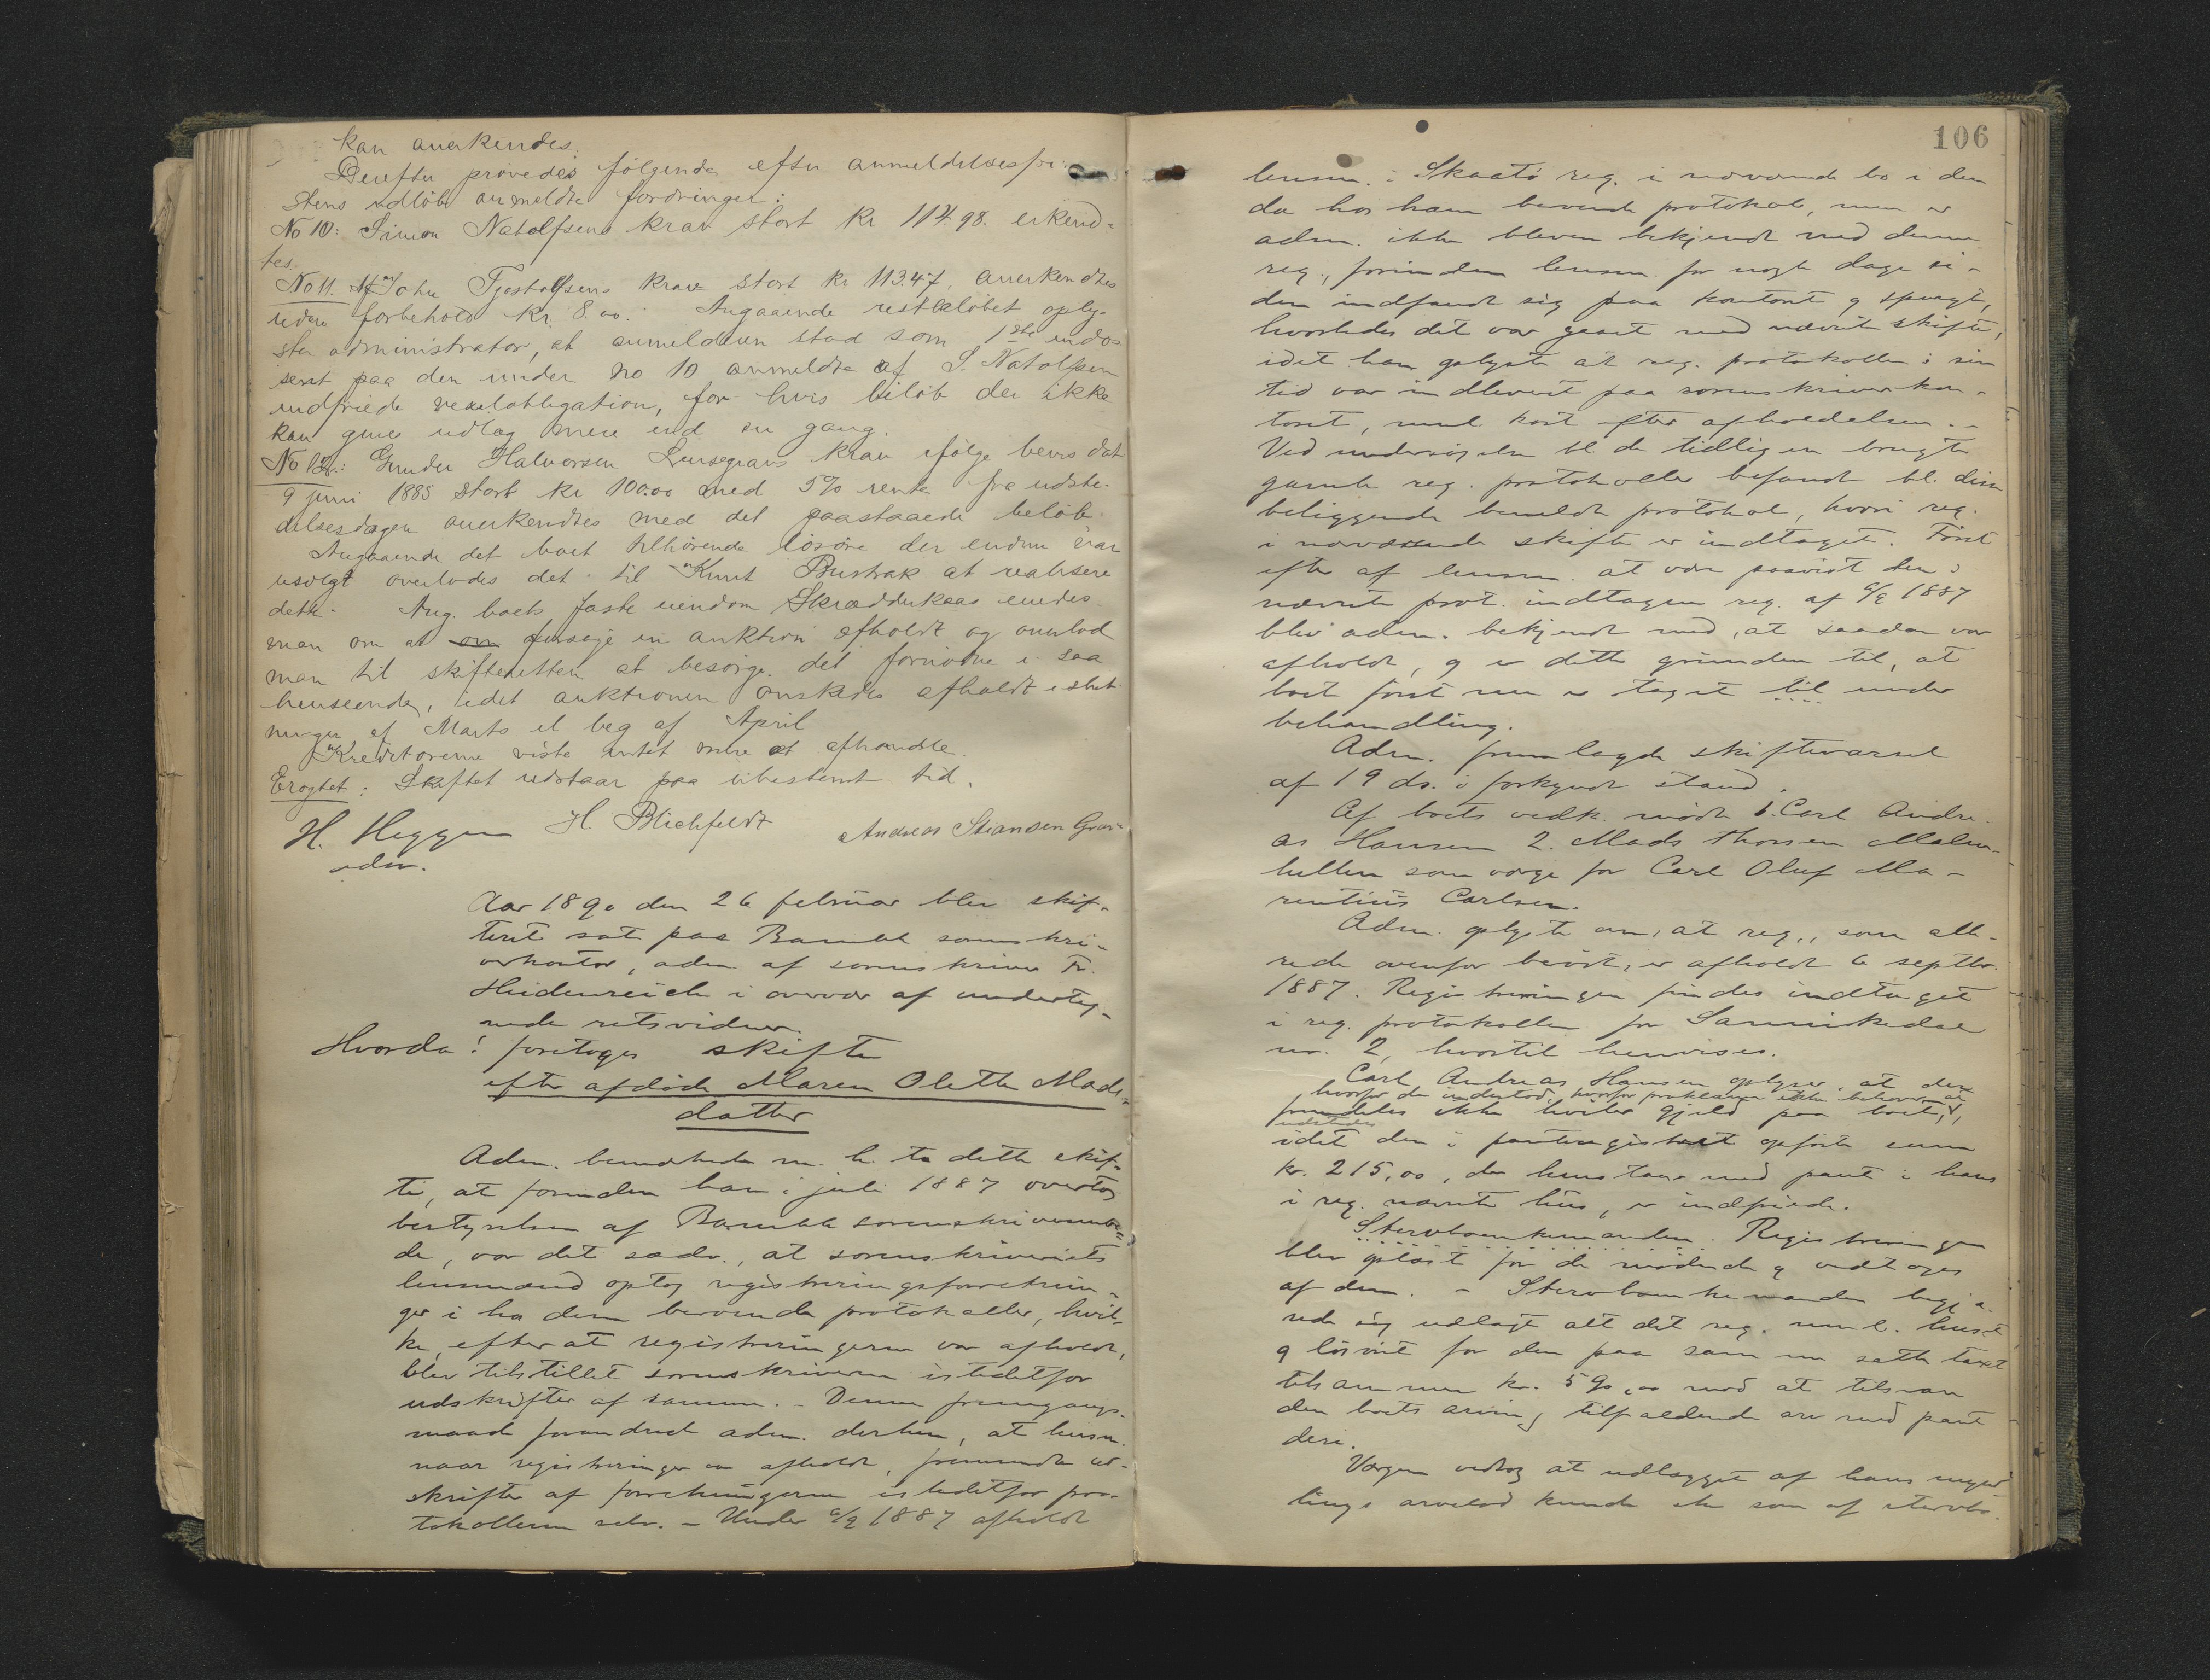 kan anerkendes.
Derefter prövedes følgende efter anmeldelsesfri-
stens udlöb anmeldte fordringer:
No 10: Simon Natolfsens krav stort kr 114.98. erkend-
tes.
No 11. John Tjostolfsens krav stort kr 113.47, anerkendtes
uden forbehold kr. 8.00. Angaaende restbelöbet oply-
ste administrator, at anmelderen stod som 1ste endos-
sent paa den under no 10 anmeldte af S. Natolfsen
indfriede vexelobligation, for hvis belöb der ikke
kan gives udlæg mere end en gang.
No 12: Gunder Halvorsen krav ifølge bevis dat
9 juni 1885 stort kr 100.00 med 5% rente fra udste-
delsesdagen anerkendtes med det paastaaede belöb.
Angaaende det boet tilhörende lösöre der endnu var
usolgt overlodes det til Knut Bustrak at realisere
dette. Ang. boets faste eiendom Skrædderkaas enedes
man om at forsöge en auktion afholdt og overlod
man til skifteretten at besörge det fornödne i saa
henseende, idet auktionen önskedes afholdt i slut-
ningen af Marts el beg af April
Kreditorerne viste intet mere at afhandle.
Eragtet: Skiftet udstaar paa ubestemt tid.
H. Heggen H. Blichfeldt Andreas Stiansen
adm.
Aar 1890 den 26 februar blev skif-
teret sat paa Bamble sorenskri-
verkontor, adm. af sorenskriver Fr.
Heidenreich i overvær af underteg-
nede retsvidner.
Hvorda: foretoges skifte
efter afdöde Maren Olette Mads-
datter
Adm. bemærkede m. h. t. dette skif-
te, at forinden han i juli 1887 overtog
bestyrelsen af Bamble sorenskriverembe-
de, var det sædv., at sorenskriveriets
lensmænd optog registreringsforretnin-
ger i hos dem beroende protokoller, hvil-
ke, efter at registreringerne var afholdt,
blev tilstillet sorenskriveren istedetfor
udskrifter af samme. – Denne fremgangs-
maade forandrede adm. derhen, at lensm.
naar registreringer var afholdt, fremsendte ud-
skrifter af forretningerne istedetfor pro-
tokollerne selv. – Under 6/9 1887 afholdt
106
lensm. i Skaatö reg. i nærværende bo i den
da hos ham beroende protokol, men er
adm. ikke bleven bekjendt med denne
reg., forinden lensm. for nogle dage si-
den indfandt sig paa kontoret og spurgte,
hvorledes det var gaaet med nævnte skifte,
idet han oplyste at reg. protokollen i sin
tid var indleveret paa sorenskriverkon-
toret, nml. kort efter afholdelsen. –
Ved undersögelse bl. de tidligere brugte
gamle reg. protokoller befandt bl. disse
beliggende bemeldte protokol, hvori reg.
i nærværende skifte er indtaget. Först
efter af lensm. at være paavist den i
nævnte prot. indtagne reg. af 6/9 1887
blev adm. bekjendt med, at saadan var
afholdt, og er dette grunden til, at
boet först nu er taget til under
behandling.
Adm. fremlagde skiftevarsel
af 19 ds. i forkyndt stand.
Af boets vedk. mödte 1. Carl Andre-
as Hansen 2. Mads Thorsen
som værge for Carl Oluf Ma-
rentius Carlsen.
Adm. oplyste om, at reg., som alle-
rede ovenfor berört, er afholdt 6 septbr.
1887. Registreringen findes indtaget
i reg. protokollen for Sannikedal
nr. 2, hvortil henvises.
Carl Andreas Hansen oplyser, at der
hvorfor proklama ikke behöver at
udstedes
fremdeles ikke hviler gjeld paa boet,
idet den i panteregistret opförte sum
kr. 215,00, der henstaar med pant i hans
i reg. nævnte hus, er indfriede.
Stervbomkemanden. Registreringen
blev oplæst for de mödende og vedtoges
af dem. – Stervbomkemanden begjæ-
rede sig udlagt alt det reg. nml. huset
og lösöret for den paa samme satte taxt
tilsammen kr. 590,00 mod at tilsvare
den boets arving tilfaldende arv med pant
deri.
Værgen vedtog at udlægget af hans mynd-
lings arvelod kunde ske som af stervbo-